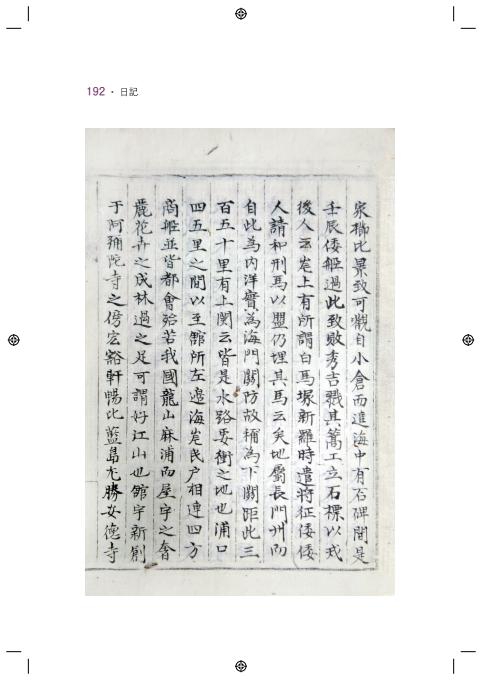 192 · 日記
家櫛比景致可觀自小倉而進海中有石碑問是
壬辰倭船過此致敗秀吉戮其蒿工立石標以戒
後人云崖上有所謂白馬塚新羅時遣將征倭倭
人請和刑馬以盟仍埋其馬云矣地屬長門州而
自此為內洋實為海門關防故稱為下關距此三
百五十里有上関云皆是水路要衝之地也浦口
四五里之間以至舘所左邊海崖民户相連四方
商船並皆都會殆若我國龍山麻浦而屋宇之奢
麗花卉之成林過之足可謂好江山也舘宇新創
于阿弥陀寺之傍宏豁軒暢比藍島尤勝安德寺